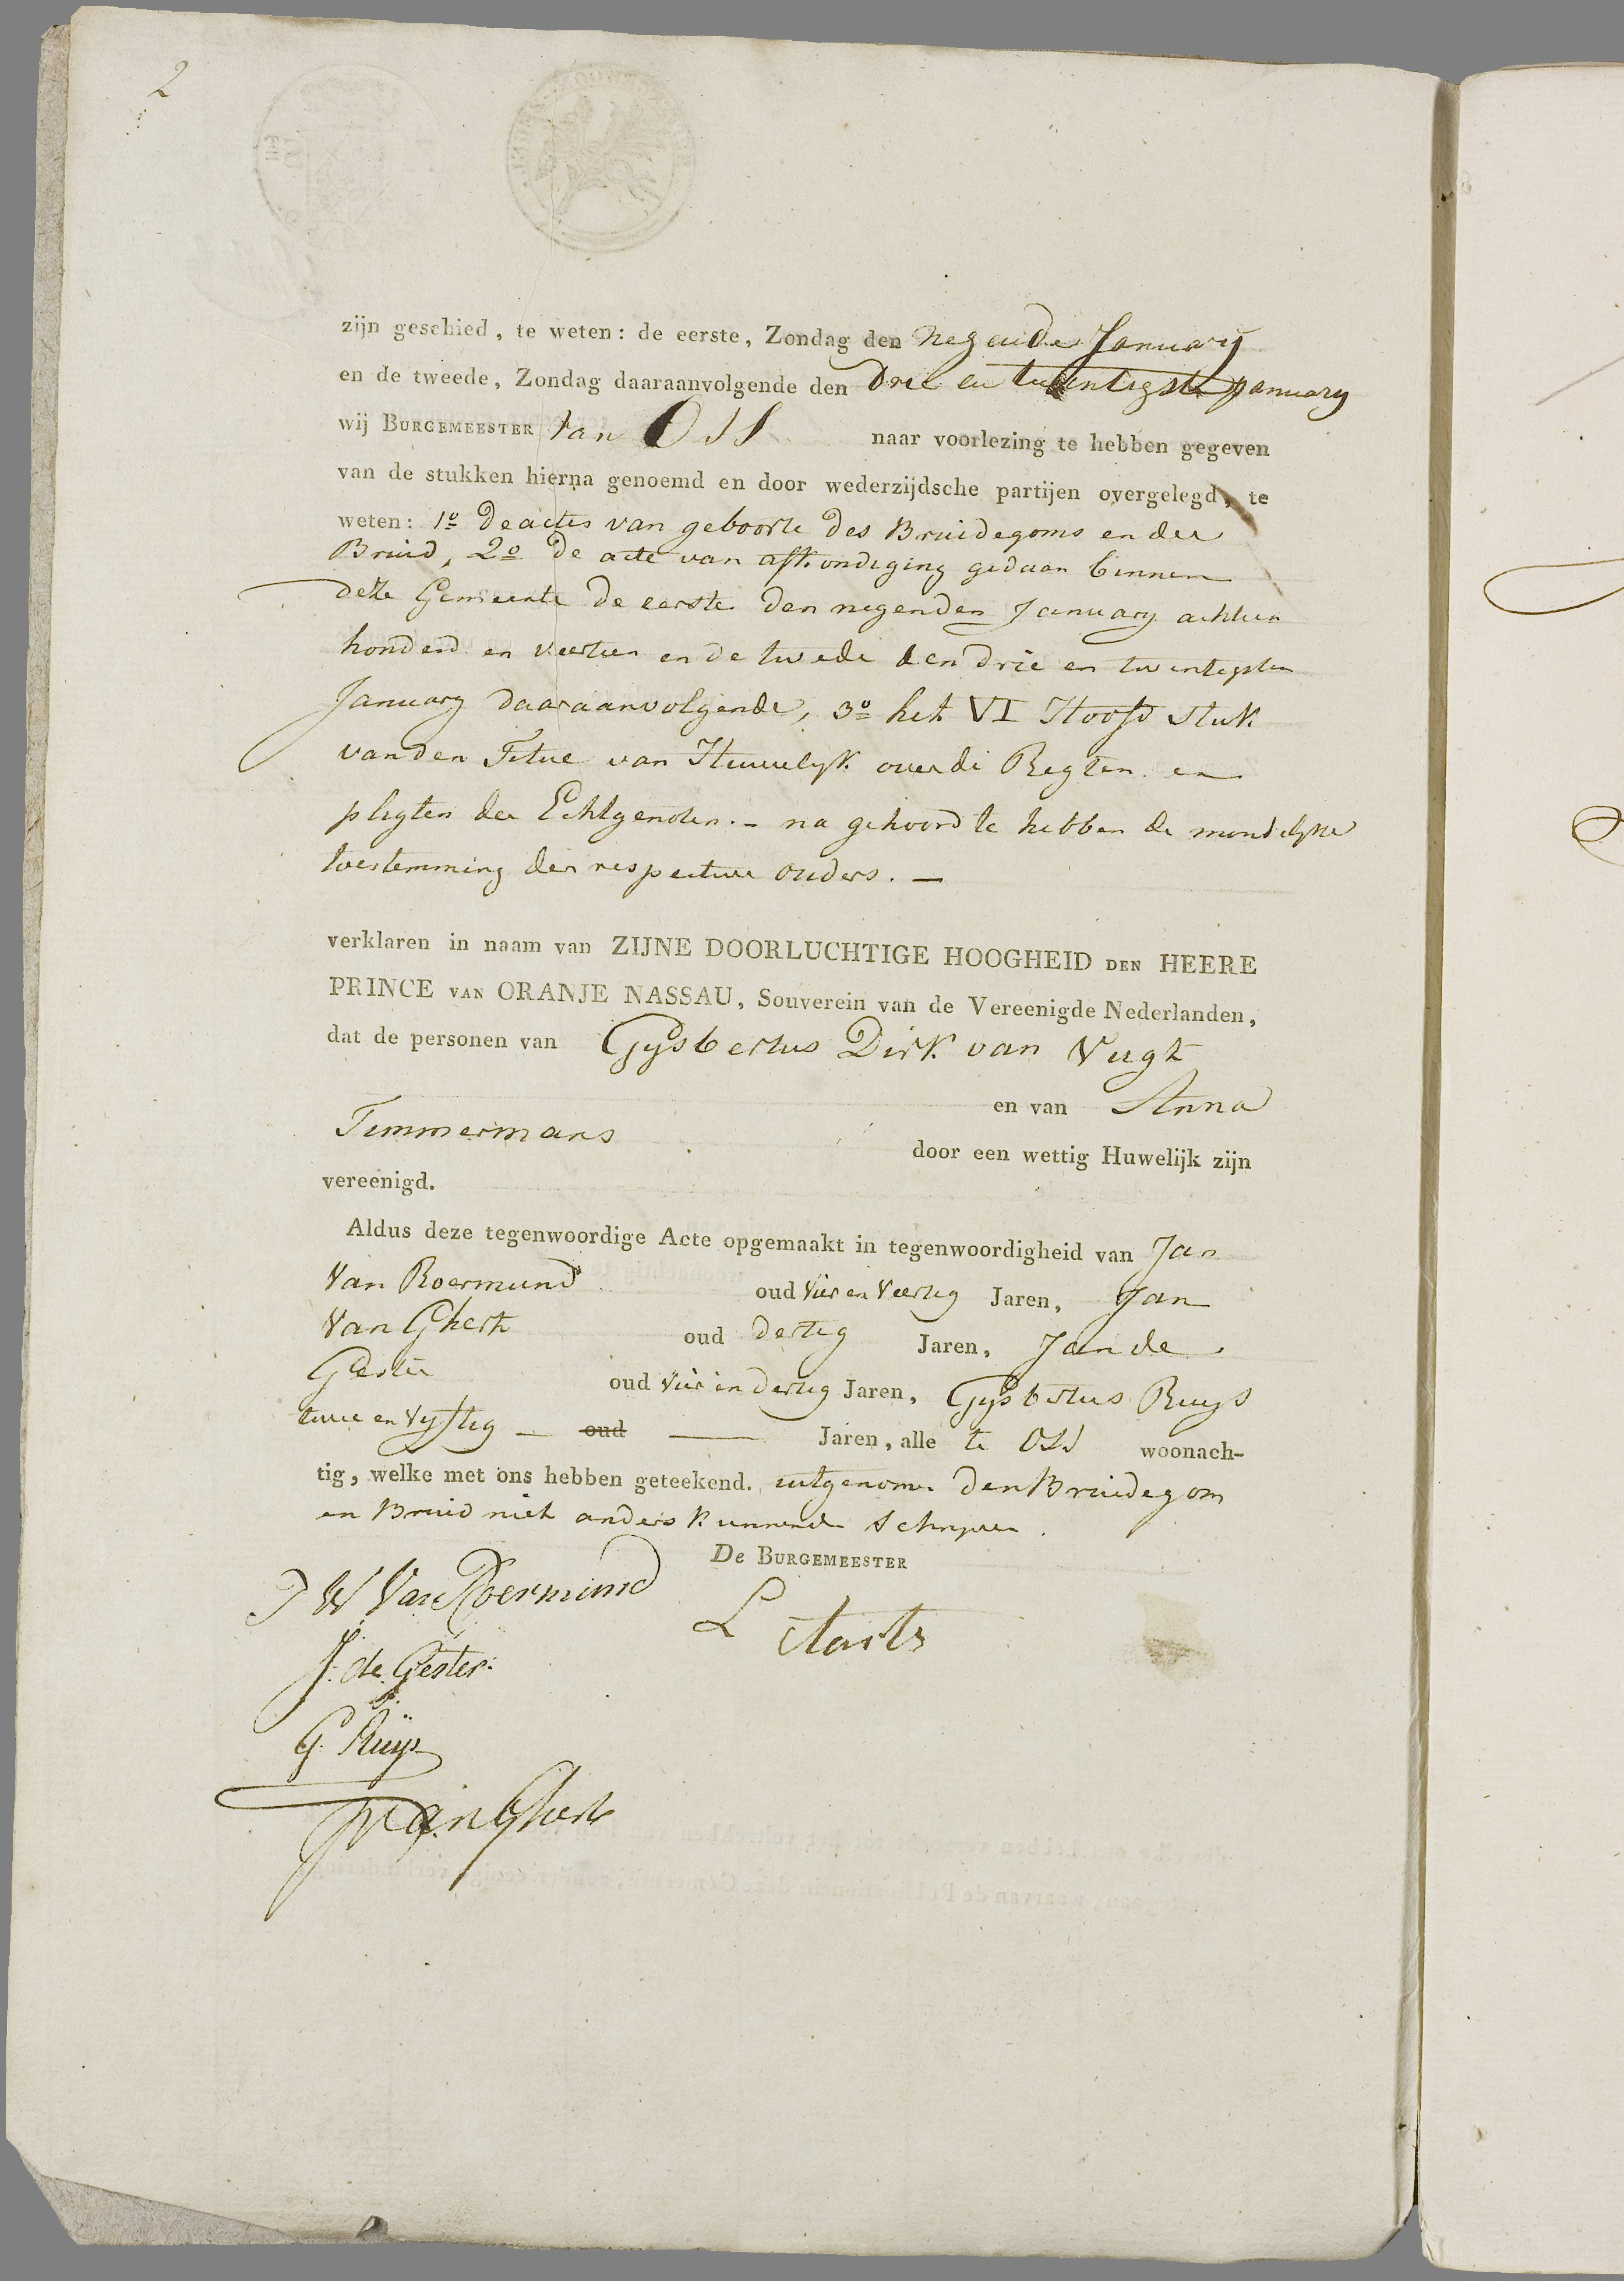 2
zijn geschied, te weten: de eerste, Zondag den negende January
en de tweede, Zondag daaraanvolgende den drie en twentigste January
wij BURGEMEESTER van Oss naar voorlezing te hebben gegeven
van de stukken hierna genoemd en door wederzijdsche partijen overgelegd, te
weten: 1º de actes van geboorte des Bruidegoms en der
Bruid, 2º de acte van afkondiging gedaan binnen
deze Gemeente de eerste den negenden January achtien
honderd en veertien en de twede den drie en twintigsten
January daaraanvolgende, 3º het VI Hoofd stuk
van den Titul van Huwelyk over de Regten en
pligten der Echtgenoten. – na gehoord te hebben de mondelyke
toestemming der respective ouders. —
verklaren in naam van ZIJNE DOORLUCHTIGE HOOGHEID DEN HEERE
PRINCE VAN ORANJE NASSAU, Souverein van de Vereenigde Nederlanden,
dat de personen van Gysbertus Dirk van Vugt
en van Anna
Timmermans door een wettig Huwelijk zijn
vereenigd.
Aldus deze tegenwoordige Acte opgemaakt in tegenwoordigheid van Jan
Van Roermund oud vier en veertig Jaren, Jan
Van Ghert oud dertig Jaren, Jan de
Gester oud vier en dertig Jaren, Gysbertus Ruys
twee en vyftig — oud — Jaren, alle te Oss woonach-
tig, welke met ons hebben geteekend. uitgenomen den Bruidegom
en Bruid niet anders kunnende schryven.
De BURGEMEESTER
J W Van Roermund
L
J. de Gester.
G. Ruys
J van Ghert